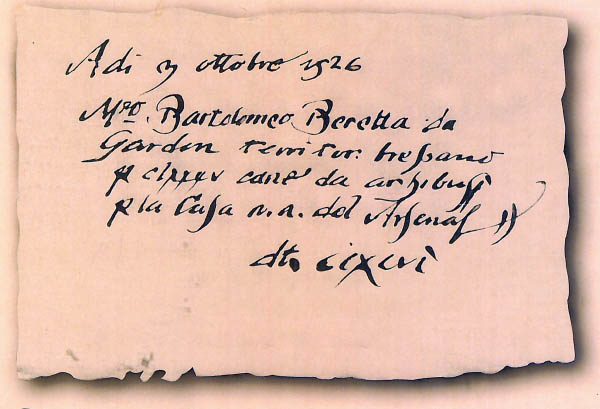 Adi 3 ottobre 1526
Mro. Bartolomeo Beretta da
Gardon territor: bressano
p clxxxv cane da archibusj
p la Casa n.a. del Arsenal
dt. cclxcvi